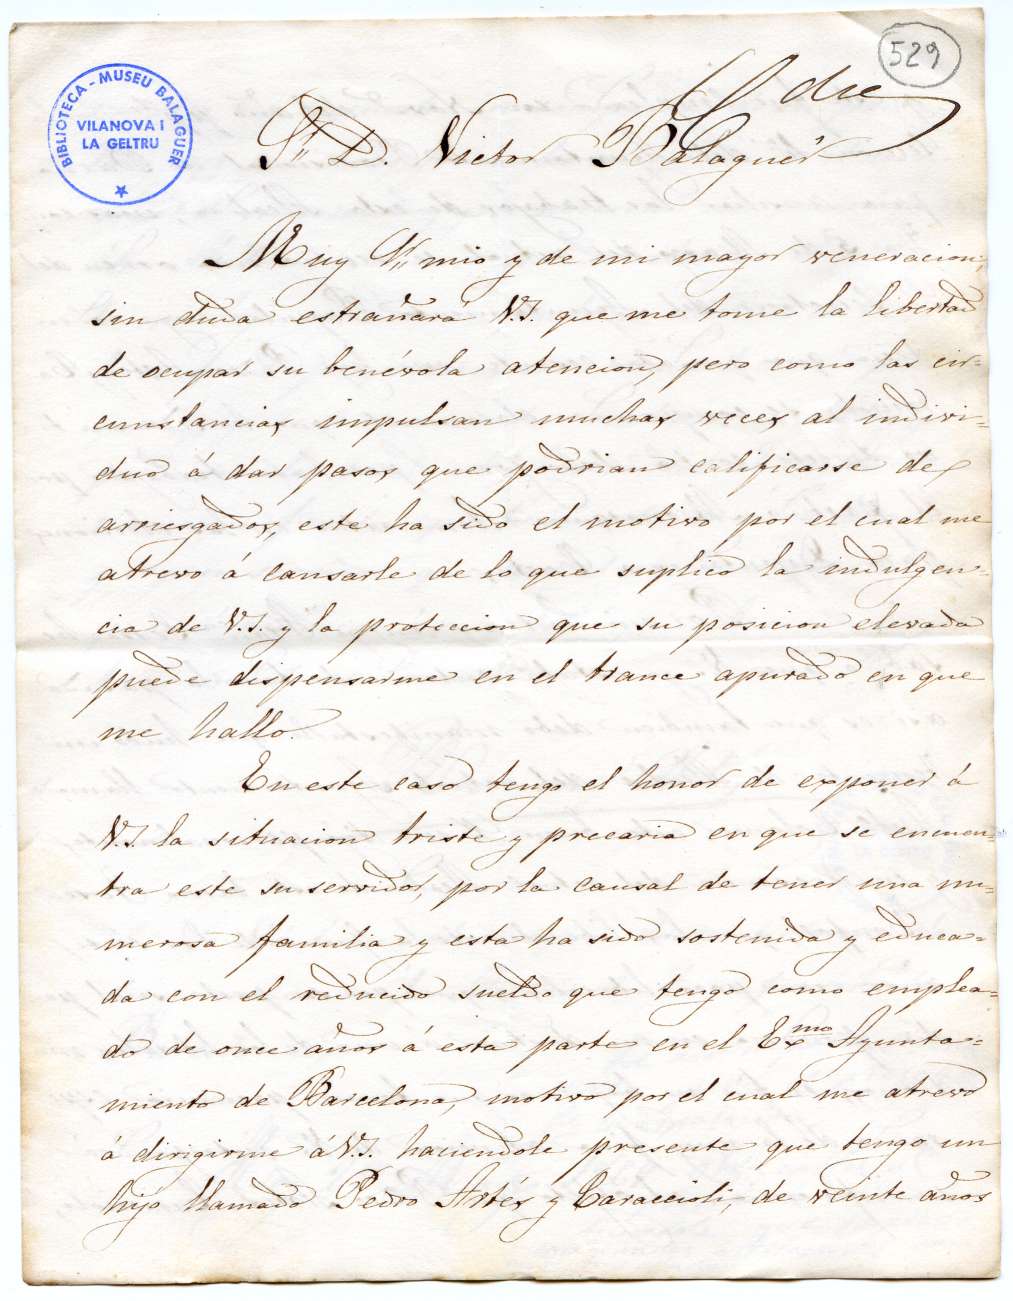 529
BIBLIOTECA - MUSEU BALAGUER
VILANOVA I
LA GELTRU
Sr. D. Victor Balaguer
Muy Sr. mio y de mi mayor veneracion;
sin duda estrañará V.I. que me tome la libertad
de ocupar su benévola atencion, pero como las cir-
cunstancias impulsan muchas veces al indivi-
duo á dar pasos que podrian calificarse de
arriesgados, este ha sido el motivo por el cual me
atrevo á cansarle de lo que suplico la indulgen-
cia de V.I. y la proteccion que su posicion elevada
puede dispensarme en el trance apurado en que
me hallo.
En este caso tengo el honor de exponer á
V.I. la situacion triste y precaria en que se encuen-
tra este su servidor, por la causal de tener una nu-
merosa familia y esta ha sido sostenida y educa-
da con el reducido sueldo que tengo como emplea-
do de once años á esta parte en el Exmo Ayunta-
miento de Barcelona, motivo por el cual me atrevo
á dirigirme á V.I. haciendole presente que tengo un
hijo llamado Pedro Artés y Caraccioli, de veinte años